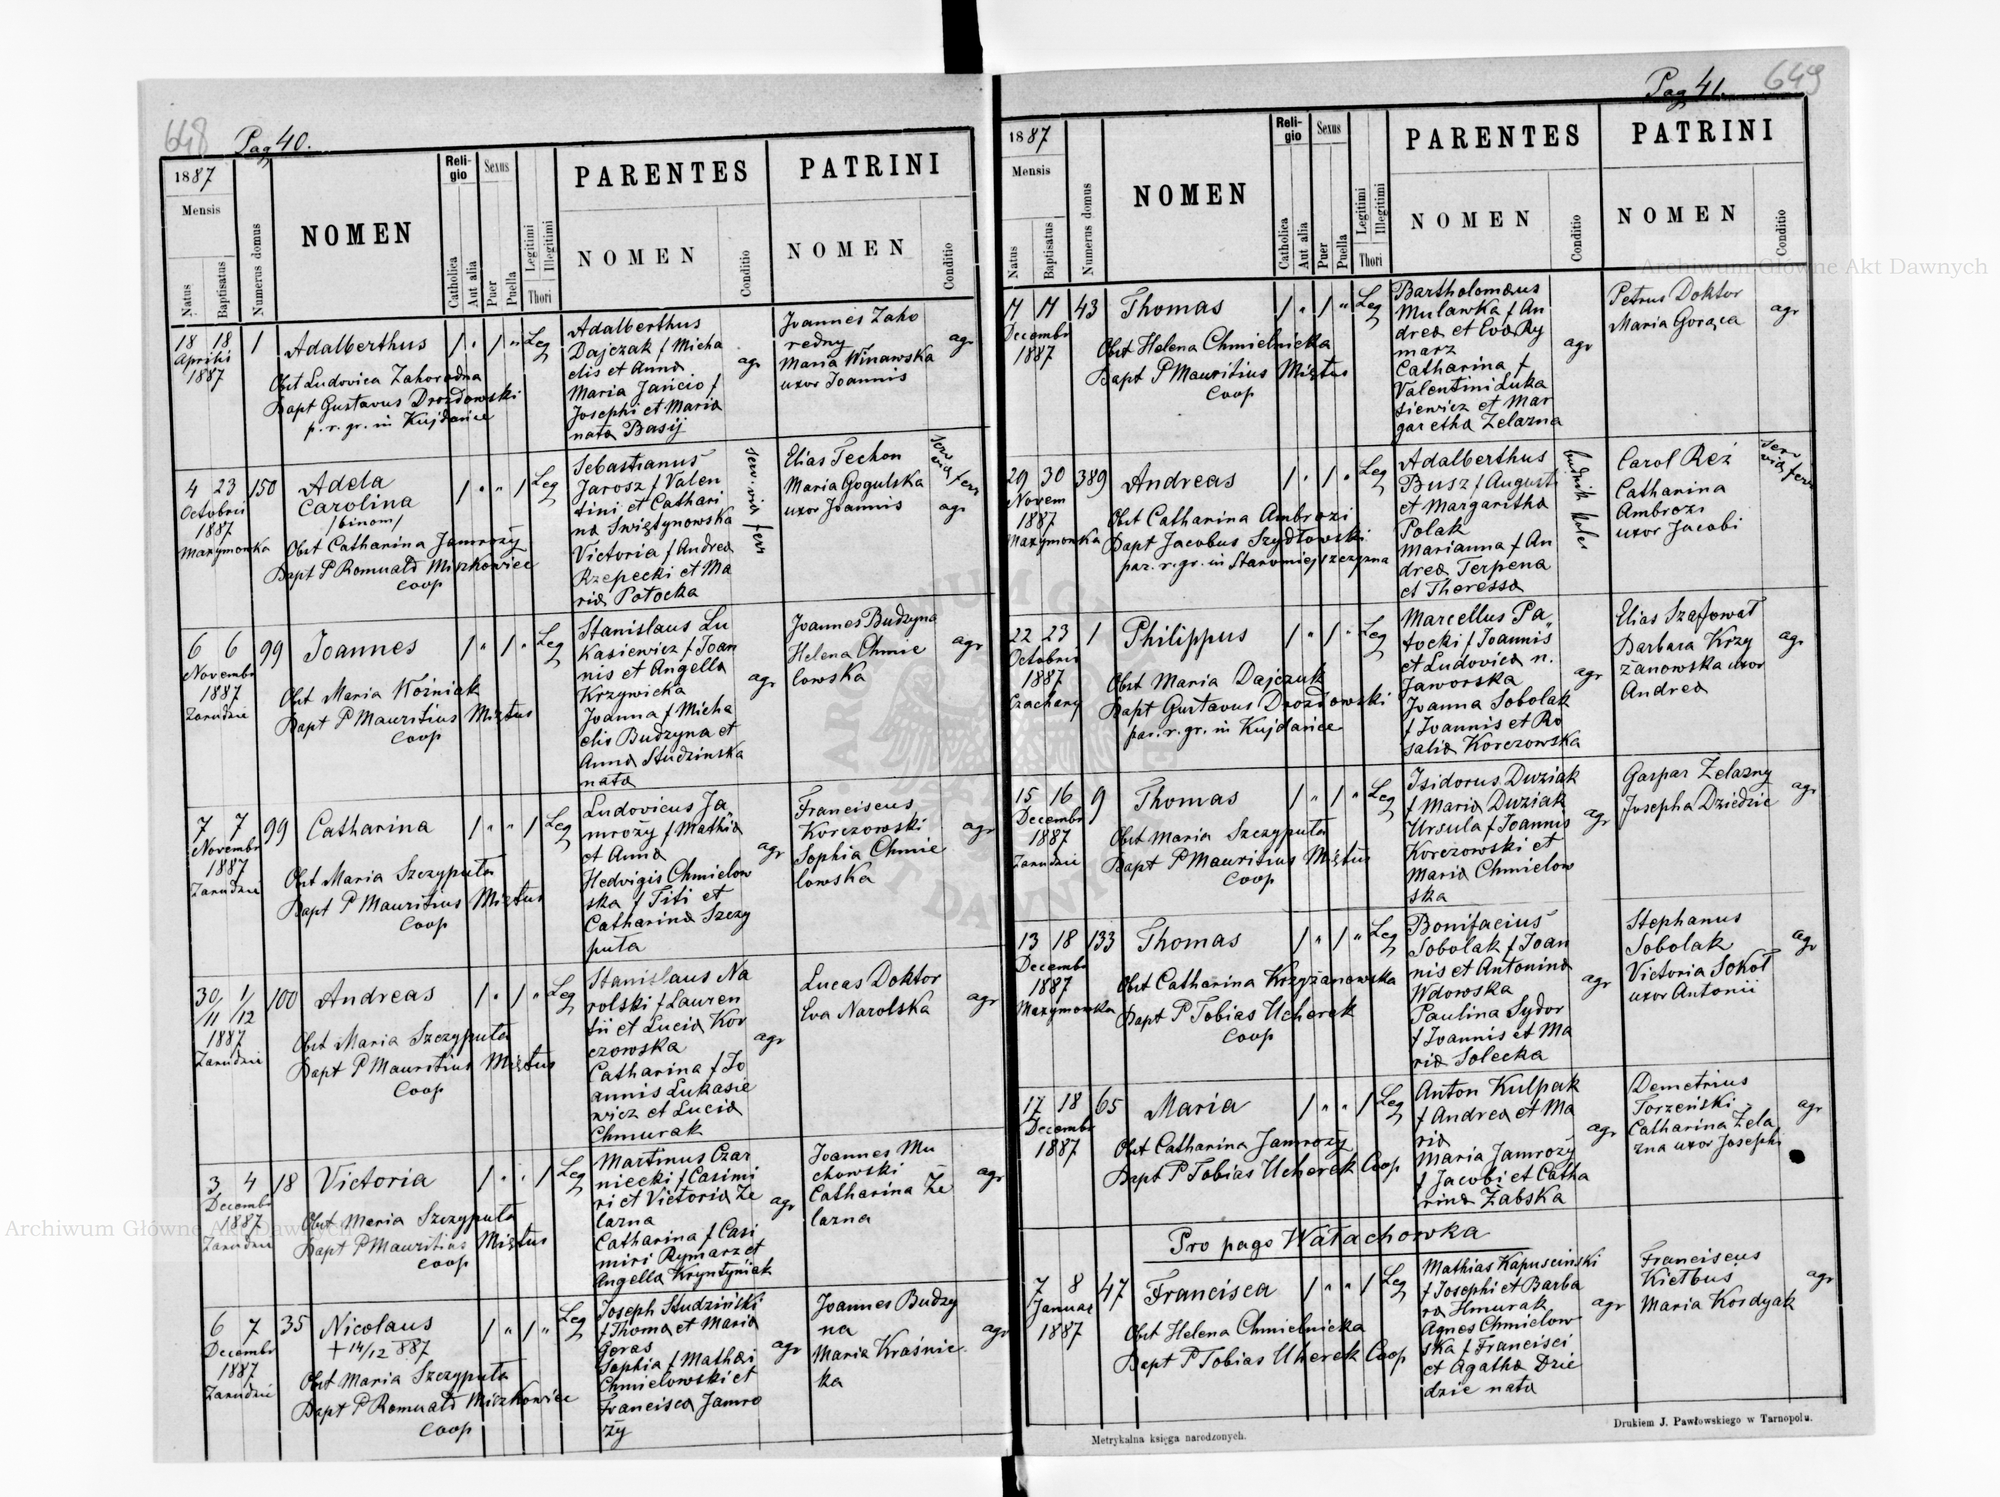 648 Pag 40.
1887
Mensis
Natus
Baptisatus
Numerus domus
NOMEN
Religio
Catholica
Aut alia
Sexus
Puer
Puella
Legitimi
Illegitimi
Thori
PARENTES
NOMEN
Conditio
PATRINI
NOMEN
Conditio
18 18 1 Adalberthus 1 " 1 " Leg
Aprilis
1887
Obst Ludovica Zahorodna
Bapt Gustavus Drozdowski
p. r. gr. in Kujdańce
Adalberthus
Dajczak f Micha
elis et Anna
Maria Jancio f
Josephi et Maria
nata Basij
agr
Joannes Zaho
redny
Maria Winawska
uxor Joannis
agr
4 23 150 Adela 1 " " 1 Leg
Octobris
1887
Maxymowka
Carolina
/binom/
Obst Catharina Jamroży
Bapt P Romuald Miszkowiec
Coop
Sebastianus
Jarosz f Valen
tini et Cathari
na Swiętynowska
Victoria f Andrea
Rzepecki et Ma
ria Potocka
Elias Techon
Maria Gogulska
uxor Joannis
agr
6 6 99 Joannes 1 " 1 " Leg
Novembr
1887
Zarudzie
Obst Maria Woźniak
Bapt P Mauritius Miętus
Coop
Stanislaus Lu
kasiewicz f Joan
nis et Angella
Krzywicka
Joanna f Micha
elis Budzyna et
Anna Studzinska
nata
agr
Joannes Budzyna
Helena Chmie
lowska
agr
7 7 99 Catharina 1 " " 1 Leg
Novembr
1887
Zarudzie
Obst Maria Szczyputa
Bapt P Mauritius Miętus
Coop
Ludovicus Ja
mroży f Mathia
et Anna
Hedvigis Chmielow
ska f Titi et
Catharina Szczy
puta
agr
Franciscus
Korczowski
Sophia Chmie
lowska
agr
30/11 1/12 100 Andreas 1 " 1 " Leg
1887
Zarudzie
Obst Maria Szczyputa
Bapt P Mauritius Miętus
Coop
Stanislaus Na
rolski f Lauren
tii et Lucia Kor
czowska
Catharina f Jo
annis Lukasie
wicz et Lucia
Chmurak
agr
Lucas Doktor
Eva Narolska
agr
3 4 18 Victoria 1 " " 1 Leg
Decembr
1887
Zarudzie
Obst Maria Szczyputa
Bapt P Mauritius Miętus
Coop
Martinus Czar
niecki f Casimi
ri et Victoria Że
lazna
Catharina f Casi
miri Rymarz et
Angella Kryntyńiek
agr
Joannes Mu
chowski
Catharina Że
lazna
agr
6 7 35 Nicolaus 1 " 1 " Leg
Decembr
1887
Zarudzie
+ 14/12 887
Obst Maria Szczyputa
Bapt P Romuald Miszkowiec
Coop
Joseph Studziński
f Thoma et Maria
Goras
Sophia f Mathæi
Chmielowski et
Francisca Jamro
ży
agr
Joannes Budzy
na
Maria Kraśnic
ka
agr
Pag 41. 649
1887
Mensis
Natus
Baptisatus
Numerus domus
NOMEN
Religio
Catholica
Aut alia
Sexus
Puer
Puella
Legitimi
Illegitimi
Thori
PARENTES
NOMEN
Conditio
PATRINI
NOMEN
Conditio
17 17 43 Thomas 1 " 1 " Leg
Decembr
1887
Obst Helena Chmielnicka
Bapt P Mauritius Miętus
Coop
Bartholomæus
Mulawka f An
drea et Eva Ry
marz
Catharina f
Valentini Luka
siewicz et Mar
garetha Zelazna
agr
Petrus Doktor
Maria Gorąca
agr
29 30 389 Andreas 1 " 1 " Leg
Novem
1887
Maxymowka
Obst Catharina Ambrozi
Bapt Jacobus Szydłowski
par. r. gr. in Staromiejszczyzna
Adalberthus
Busz f Augusti
et Margaritha
Polak
Marianna f An
drea Terpena
et Theressa
budnik kolej
Carol Reż
Catharina
Ambrozi
uxor Jacobi
22 23 1 Philippus 1 " 1 " Leg
Octobris
1887
Czachary
Obst Maria Dajczuk
Bapt Gustavus Drozdowski
par. r. gr. in Kujdańce
Marcellus Pa
tocki f Joannis
et Ludovica n.
Jaworska
Joanna Sobolak
f Joannis et Ro
salia Korczowska
agr
Elias Szafowat
Barbara Krzy
żanowska uxor
Andrea
agr
15 16 9 Thomas 1 " 1 " Leg
Decembr
1887
Zarudzie
Obst Maria Szczyputa
Bapt P Mauritius Miętus
Coop
Isidorus Duziak
f Maria Duziak
Ursula f Joannis
Korczowski et
Maria Chmielow
ska
agr
Gaspar Zelazny
Josepha Dziedzic
agr
13 18 133 Thomas 1 " 1 " Leg
Decembr
1887
Maxymowka
Obst Catharina Krzyżanowska
Bapt P Tobias Ucherek
Coop
Bonifacius
Sobolak f Joan
nis et Antonina
Wdowska
Paulina Sydor
f Joannis et Ma
ria Solecka
agr
Stephanus
Sobolak
Victoria Sokoł
uxor Antonii
agr
17 18 65 Maria 1 " " 1 Leg
Decembr
1887
Obst Catharina Jamroży
Bapt P Tobias Ucherek Coop
Anton Kulpak
f Andrea et Ma
ria
Maria Jamroży
f Jacobi et Catha
rina Żabska
agr
Demetrius
Torzeński
Catharina Zela
zna uxor Josephi
agr
Pro pago Wałachowka
7 8 47 Francisca 1 " " 1 Leg
Januar
1887
Obst Helena Chmielnicka
Bapt P Tobias Uherek Coop
Mathias Kapusciński
f Josephi et Barba
ra Hmurak
Agnes Chmielow
ska f Francisci
et Agatha Dzie
dzic nata
agr
Franciscus
Kiełbus
Maria Kordyak
agr
Metrykalna księga narodzonych.
Drukiem J. Pawłowskiego w Tarnopolu.
Archiwum Główne Akt Dawnych
Archiwum Główne Akt Dawnych